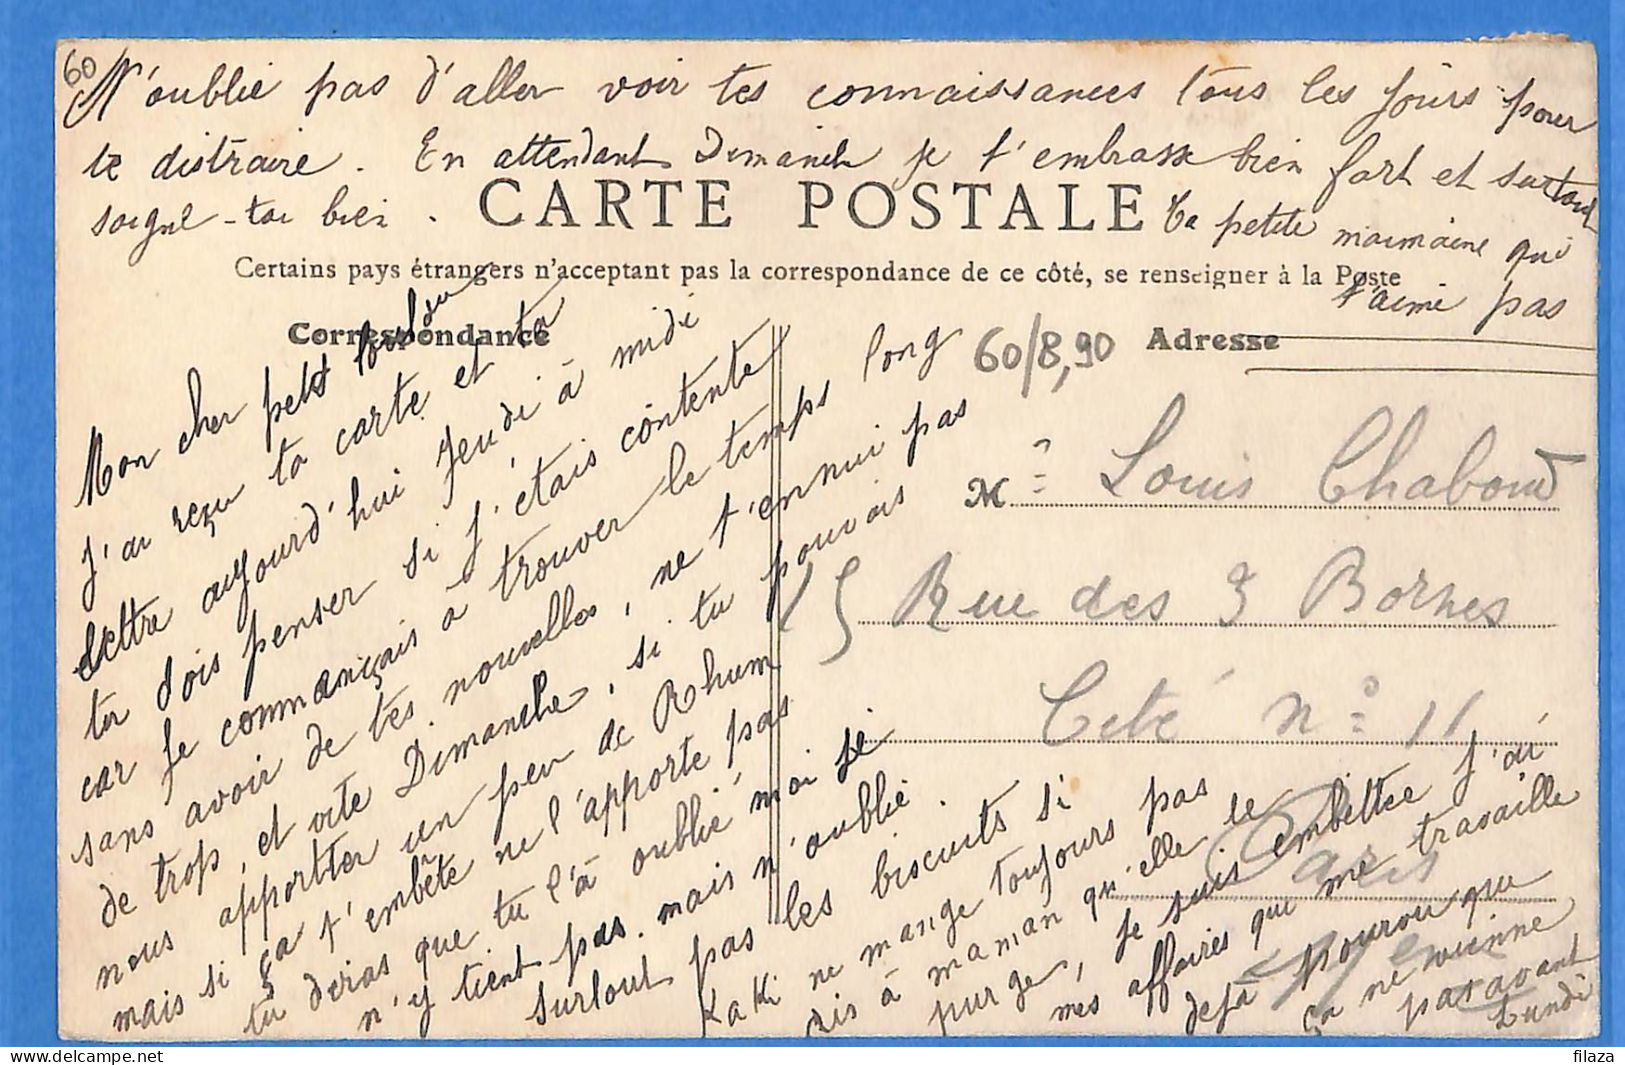 60
N'oublie pas d'aller voir tes connaissances tous les jours pour
te distraire. En attendant Dimanche je t'embrasse bien fort et surtout
soigne-toi bien. Ta petite
qui
t'aime pas
CARTE POSTALE
Certains pays étrangers n'acceptant pas la correspondance de ce côté, se renseigner à la Poste
Correspondance
Adresse
60/8,90
Mon cher petit
J'ai reçu ta carte et ta
lettre aujourd'hui Jeudi à midi
tu dois penser si j'étais contente
car je commançais à trouver le temps long
sans avoir de tes nouvelles, ne t'ennui pas
de trop, et vite Dimanche, si tu pouvais
nous apportter un peu de Rhum
mais si ça t'embête ne l'apporte pas
tu diras que tu l'à oublié, moi je
n'y tient pas. mais n'oublie.
surtout pas les biscuits si
Kaki ne mange toujours pas
dis à maman qu'elle le
purge, je suis embettée j'ai
mes affaires qui me travaille
dejà pourvu que
ça ne vienne
pas avant
Lundi
M.r Louis Chaboud
15 Rue des 3 Bornes
Cité n° 11
Paris
filaza